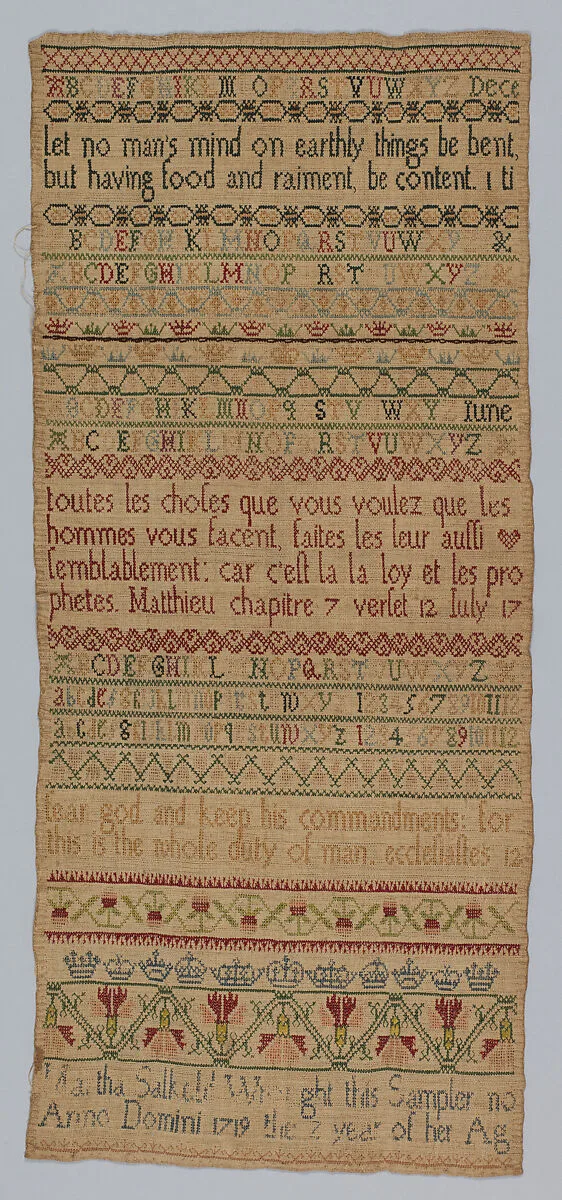 ABCDEFGHIKLM OP RST VUWXYZ Dece
let no man's mind on earthly things be bent,
but having food and raiment, be content. 1 ti
BCDEFGH KLMNOPQRSTVUWXY &
ABCDEFGHIKLMNOP RST UWXYZ &
BCDEFGHIKLMNOPQ STV WXY Iune
ABC EFGHIKL NOP RSTVUWXYZ
toutes les choſes que vous voulez que les
hommes vous facent, faites les leur auſſi
ſemblablement: car c'eſt la la loy et les pro
phetes. Matthieu chapitre 7 verſet 12 Iuly 17
ABCDEFGHIKL NOPQRST UWXYZ
fear god and keep his commandments: for
this is the whole duty of man. eccleſiaſtes 12
Salkeld this Sampler no
Anno Domini 1719 the year of her Ag